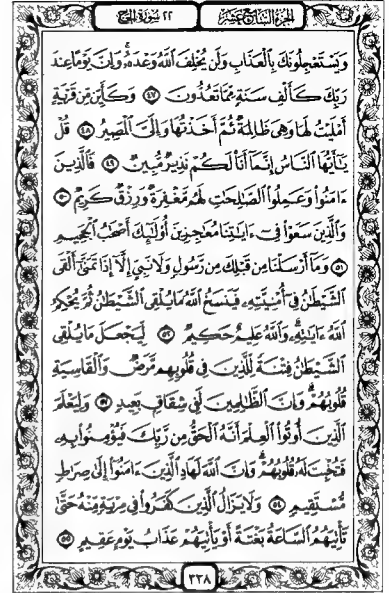 الجزء السابع عشر
٢٢ سورة الحج
وَيَسْتَعْجِلُونَكَ بِالْعَذَابِ وَلَن يُخْلِفَ اللَّهُ وَعْدَهُ وَإِنَّ يَوْمًا عِندَ
رَبِّكَ كَأَلْفِ سَنَةٍ مِّمَّا تَعُدُّونَ ٤٧ وَكَأَيِّن مِّن قَرْيَةٍ
أَمْلَيْتُ لَهَا وَهِيَ ظَالِمَةٌ ثُمَّ أَخَذْتُهَا وَإِلَيَّ الْمَصِيرُ ٤٨ قُلْ
يَٰٓأَيُّهَا النَّاسُ إِنَّمَا أَنَا۠ لَكُمْ نَذِيرٌ مُّبِينٌ ٤٩ فَالَّذِينَ
ءَامَنُوا وَعَمِلُوا الصَّٰلِحَٰتِ لَهُم مَّغْفِرَةٌ وَرِزْقٌ كَرِيمٌ ٥٠
وَالَّذِينَ سَعَوْا فِي ءَايَٰتِنَا مُعَٰجِزِينَ أُولَٰئِكَ أَصْحَٰبُ الْجَحِيمِ
٥١ وَمَا أَرْسَلْنَا مِن قَبْلِكَ مِن رَّسُولٍ وَلَا نَبِيٍّ إِلَّا إِذَا تَمَنَّىٰ أَلْقَى
الشَّيْطَٰنُ فِي أُمْنِيَّتِهِ فَيَنسَخُ اللَّهُ مَا يُلْقِي الشَّيْطَٰنُ ثُمَّ يُحْكِمُ
اللَّهُ ءَايَٰتِهِ وَاللَّهُ عَلِيمٌ حَكِيمٌ ٥٢ لِّيَجْعَلَ مَا يُلْقِي
الشَّيْطَٰنُ فِتْنَةً لِّلَّذِينَ فِي قُلُوبِهِم مَّرَضٌ وَالْقَاسِيَةِ
قُلُوبُهُمْ وَإِنَّ الظَّٰلِمِينَ لَفِي شِقَاقٍ بَعِيدٍ ٥٣ وَلِيَعْلَمَ
الَّذِينَ أُوتُوا الْعِلْمَ أَنَّهُ الْحَقُّ مِن رَّبِّكَ فَيُؤْمِنُوا بِهِ
فَتُخْبِتَ لَهُ قُلُوبُهُمْ وَإِنَّ اللَّهَ لَهَادِ الَّذِينَ ءَامَنُوا إِلَىٰ صِرَٰطٍ
مُّسْتَقِيمٍ ٥٤ وَلَا يَزَالُ الَّذِينَ كَفَرُوا فِي مِرْيَةٍ مِّنْهُ حَتَّىٰ
تَأْتِيَهُمُ السَّاعَةُ بَغْتَةً أَوْ يَأْتِيَهُمْ عَذَابُ يَوْمٍ عَقِيمٍ ٥٥
٣٣٨